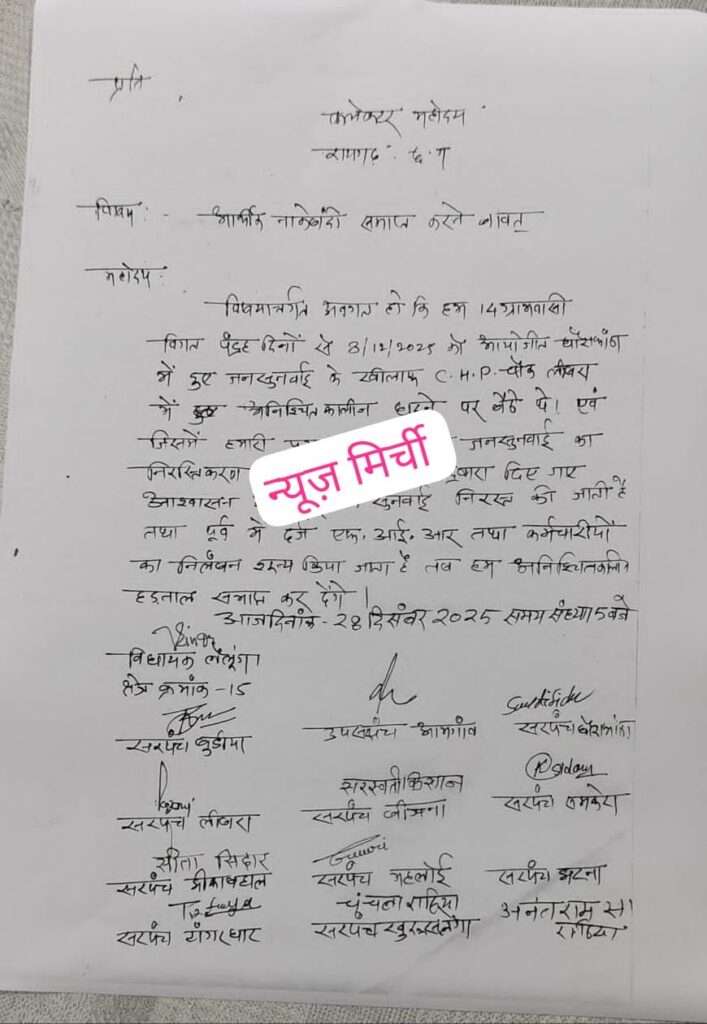 प्रति,
कलेक्टर महोदय
रायगढ़ छ.ग
विषय :- आर्थिक नाकेबंदी समाप्त करने बावत्
महोदय :
विषयान्तर्गत अवगत हो कि हम 14 ग्रामवासी
विगत पंद्रह दिनों से 8/12/2025 को आयोजीत धौराभांठा
में हुए जनसुनवाई के खीलाफ C.H.P. चौक लीबरा
में अनिश्चित कालीन धरने पर बैठे थे। एवं
जिसमें हमारी जनसुनवाई का
निरस्तिकरण द्वारा दिए गए
आश्वासन सुनवाई निरस्त की जाती है
तथा पूर्व में दर्ज एफ. आई. आर तथा कर्मचारीयों
का निलंबन शून्य किया जाता है तब हम अनिश्चितकालिन
हड़ताल समाप्त कर देंगे।
आज दिनांक - 28 दिसंबर 2025 समय संध्या 5 बजे
न्यूज़ मिर्ची
विधायक लैलूंगा
क्षेत्र क्रमांक -15
सरपंच बुडीया उपसरपंच आमगांव सरपंच धौराभांठा
सरस्वती किसान
सरपंच लीबरा सरपंच सरपंच
सीता सिदार
सरपंच सरपंच महलोई सरपंच झरना
राठिया अनंत राम सा
सरपंच टांगरघाट सरपंच खुरूसलेंगा राठिया